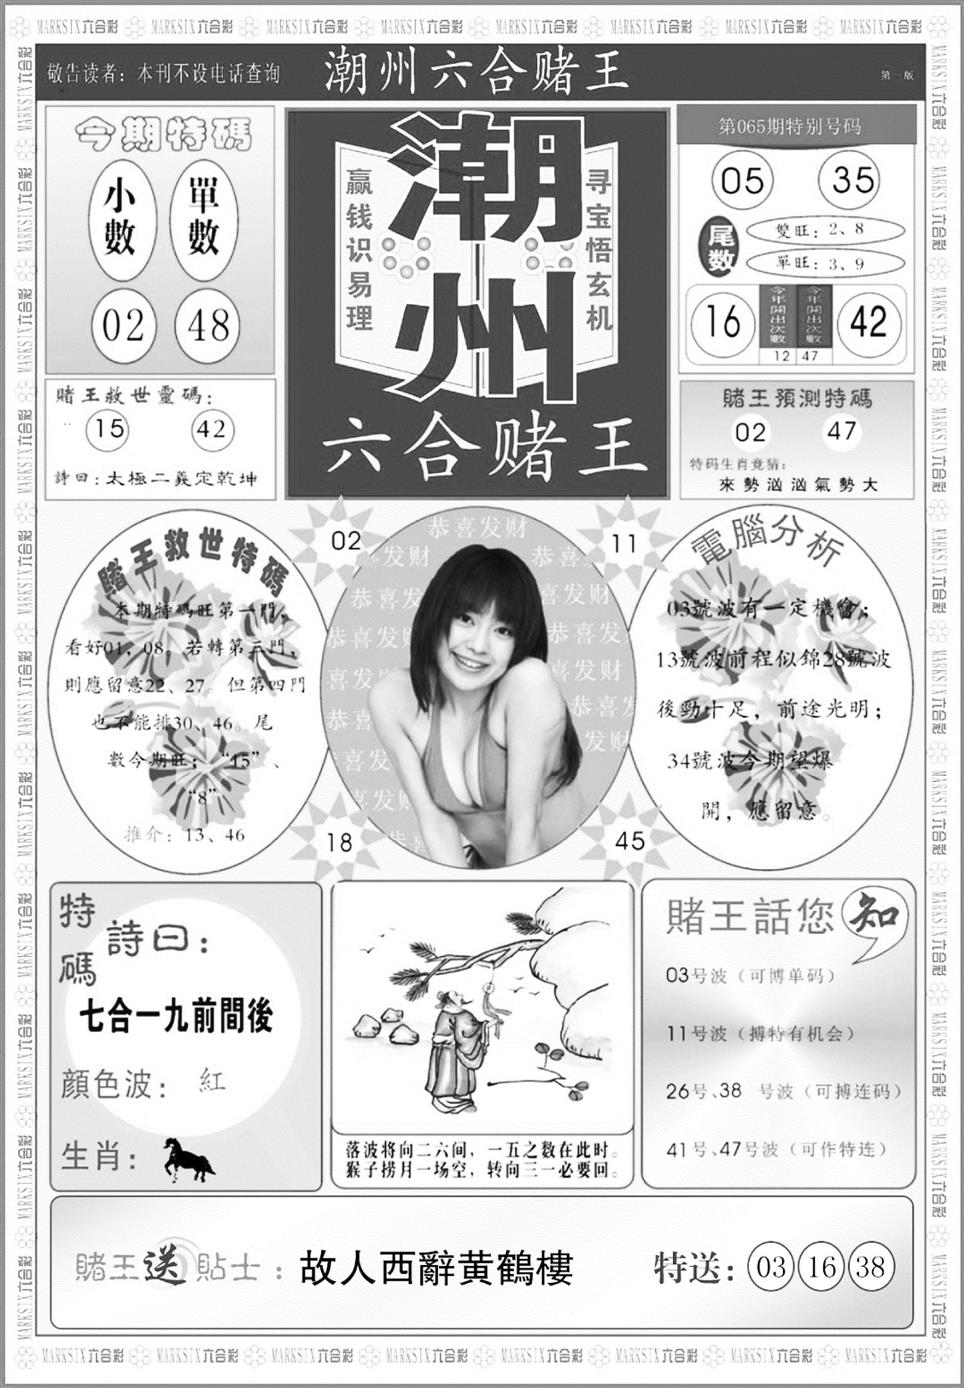 MARKSIX六合彩
敬告读者：本刊不设电话查询
潮州六合赌王
第一版
今期特碼
小數 單數
02 48
赢钱识易理
潮州
寻宝悟玄机
六合赌王
第065期特别号码
05 35
尾数
雙旺：2、8
單旺：3、9
16 今年開出次數 今年開出次數 42
12 47
賭王救世靈碼：
15 42
詩曰：太極二義定乾坤
賭王預測特碼
02 47
特码生肖竟猜：
來勢洶洶氣勢大
賭王救世特碼
本期特碼旺第一門，
看好01，08。若轉第三門，
則應留意22、27。但第四門
也不能排30、46。尾
數今期旺；“15”、
“8”
推介：13、46
02
11
18
45
恭喜发财
電腦分析
03號波有一定機會；
13號波前程似錦28號波
後勁十足，前途光明；
34號波今期望爆
開，應留意。
特碼詩曰：
七合一九前間後
顔色波：紅
生肖：
落波将向二六间，一五之数在此时。
猴子捞月一场空，转向三一必要回。
賭王話您知
03号波（可博单码）
11号波（搏特有机会）
26号、38 号波（可搏连码）
41号、47号波（可作特连）
賭王送貼士：故人西辭黄鶴樓
特送：03 16 38